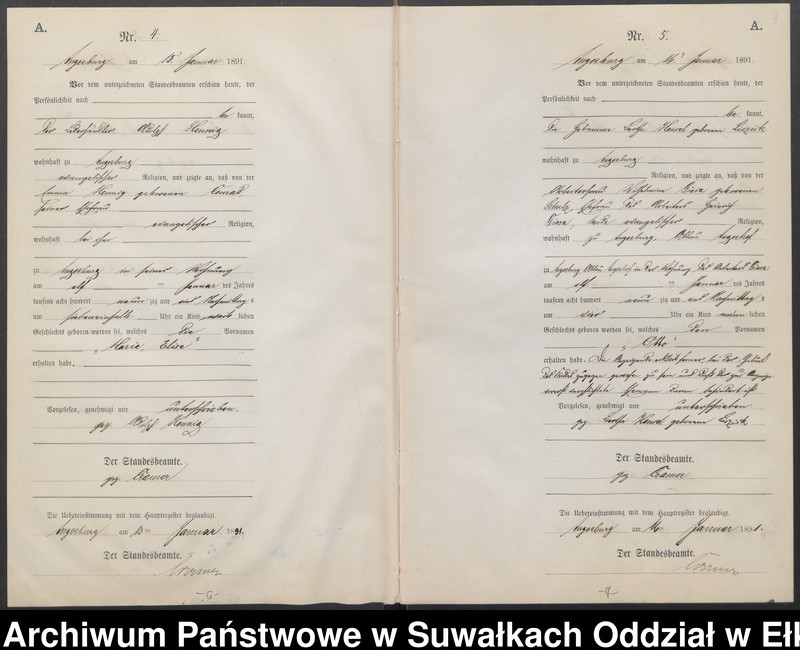 A.
Nr. 4.
Angerburg am 13ten Januar 1891.
Vor dem unterzeichneten Standesbeamten erschien heute, der
Persönlichkeit nach
be kannt,
der Lederhändler Adolf Hennig
wohnhaft zu Angerburg
evangelischer Religion, und zeigte an, daß von der
Emma Hennig geborenen Conrad,
seiner Ehefrau
evangelischer Religion,
wohnhaft bei ihm
zu Angerburg in seiner Wohnung
am elf ten Januar des Jahres
tausend acht hundert neun zig und eins Nachmittag s
um siebeneinhalb Uhr ein Kind weib lichen
Geschlechts geboren worden sei, welches die Vornamen
„Marie, Elise“
erhalten habe.
Vorgelesen, genehmigt und unterschrieben.
gez. Adolf Hennig
Der Standesbeamte.
gez.
Die Uebereinstimmung mit dem Hauptregister beglaubigt.
Angerburg am 13ten Januar 1891.
Der Standesbeamte.
-6-
A.
Nr. 5.
Angerburg am 16ten Januar 1891.
Vor dem unterzeichneten Standesbeamten erschien heute, der
Persönlichkeit nach
be kannt,
die Hebamme geborene
wohnhaft zu Angerburg
Religion, und zeigte an, daß von der
Arbeiterfrau Wilhelmine geborenen
Schulz, Ehefrau des Arbeiters Heinrich
beide evangelischer Religion,
wohnhaft zu Angerburg,
zu Angerburg in der Wohnung des Arbeiters
am elf ten Januar des Jahres
tausend acht hundert neun zig und eins Nachmittag s
um vier Uhr ein Kind männ lichen
Geschlechts geboren worden sei, welches den Vornamen
„Otto“
erhalten habe. Die Anzeigende erklärt ferner, bei der Geburt
des Kindes zugegen gewesen zu sein und daß der zur Anzeige
zuerst verpflichtete Ehemann daran behindert ist.
Vorgelesen, genehmigt und unterschrieben
gez. geborene
Der Standesbeamte.
gez.
Die Uebereinstimmung mit dem Hauptregister beglaubigt.
Angerburg am 16ten Januar 1891.
Der Standesbeamte.
-7-
Archiwum Państwowe w Suwałkach Oddział w Ełk